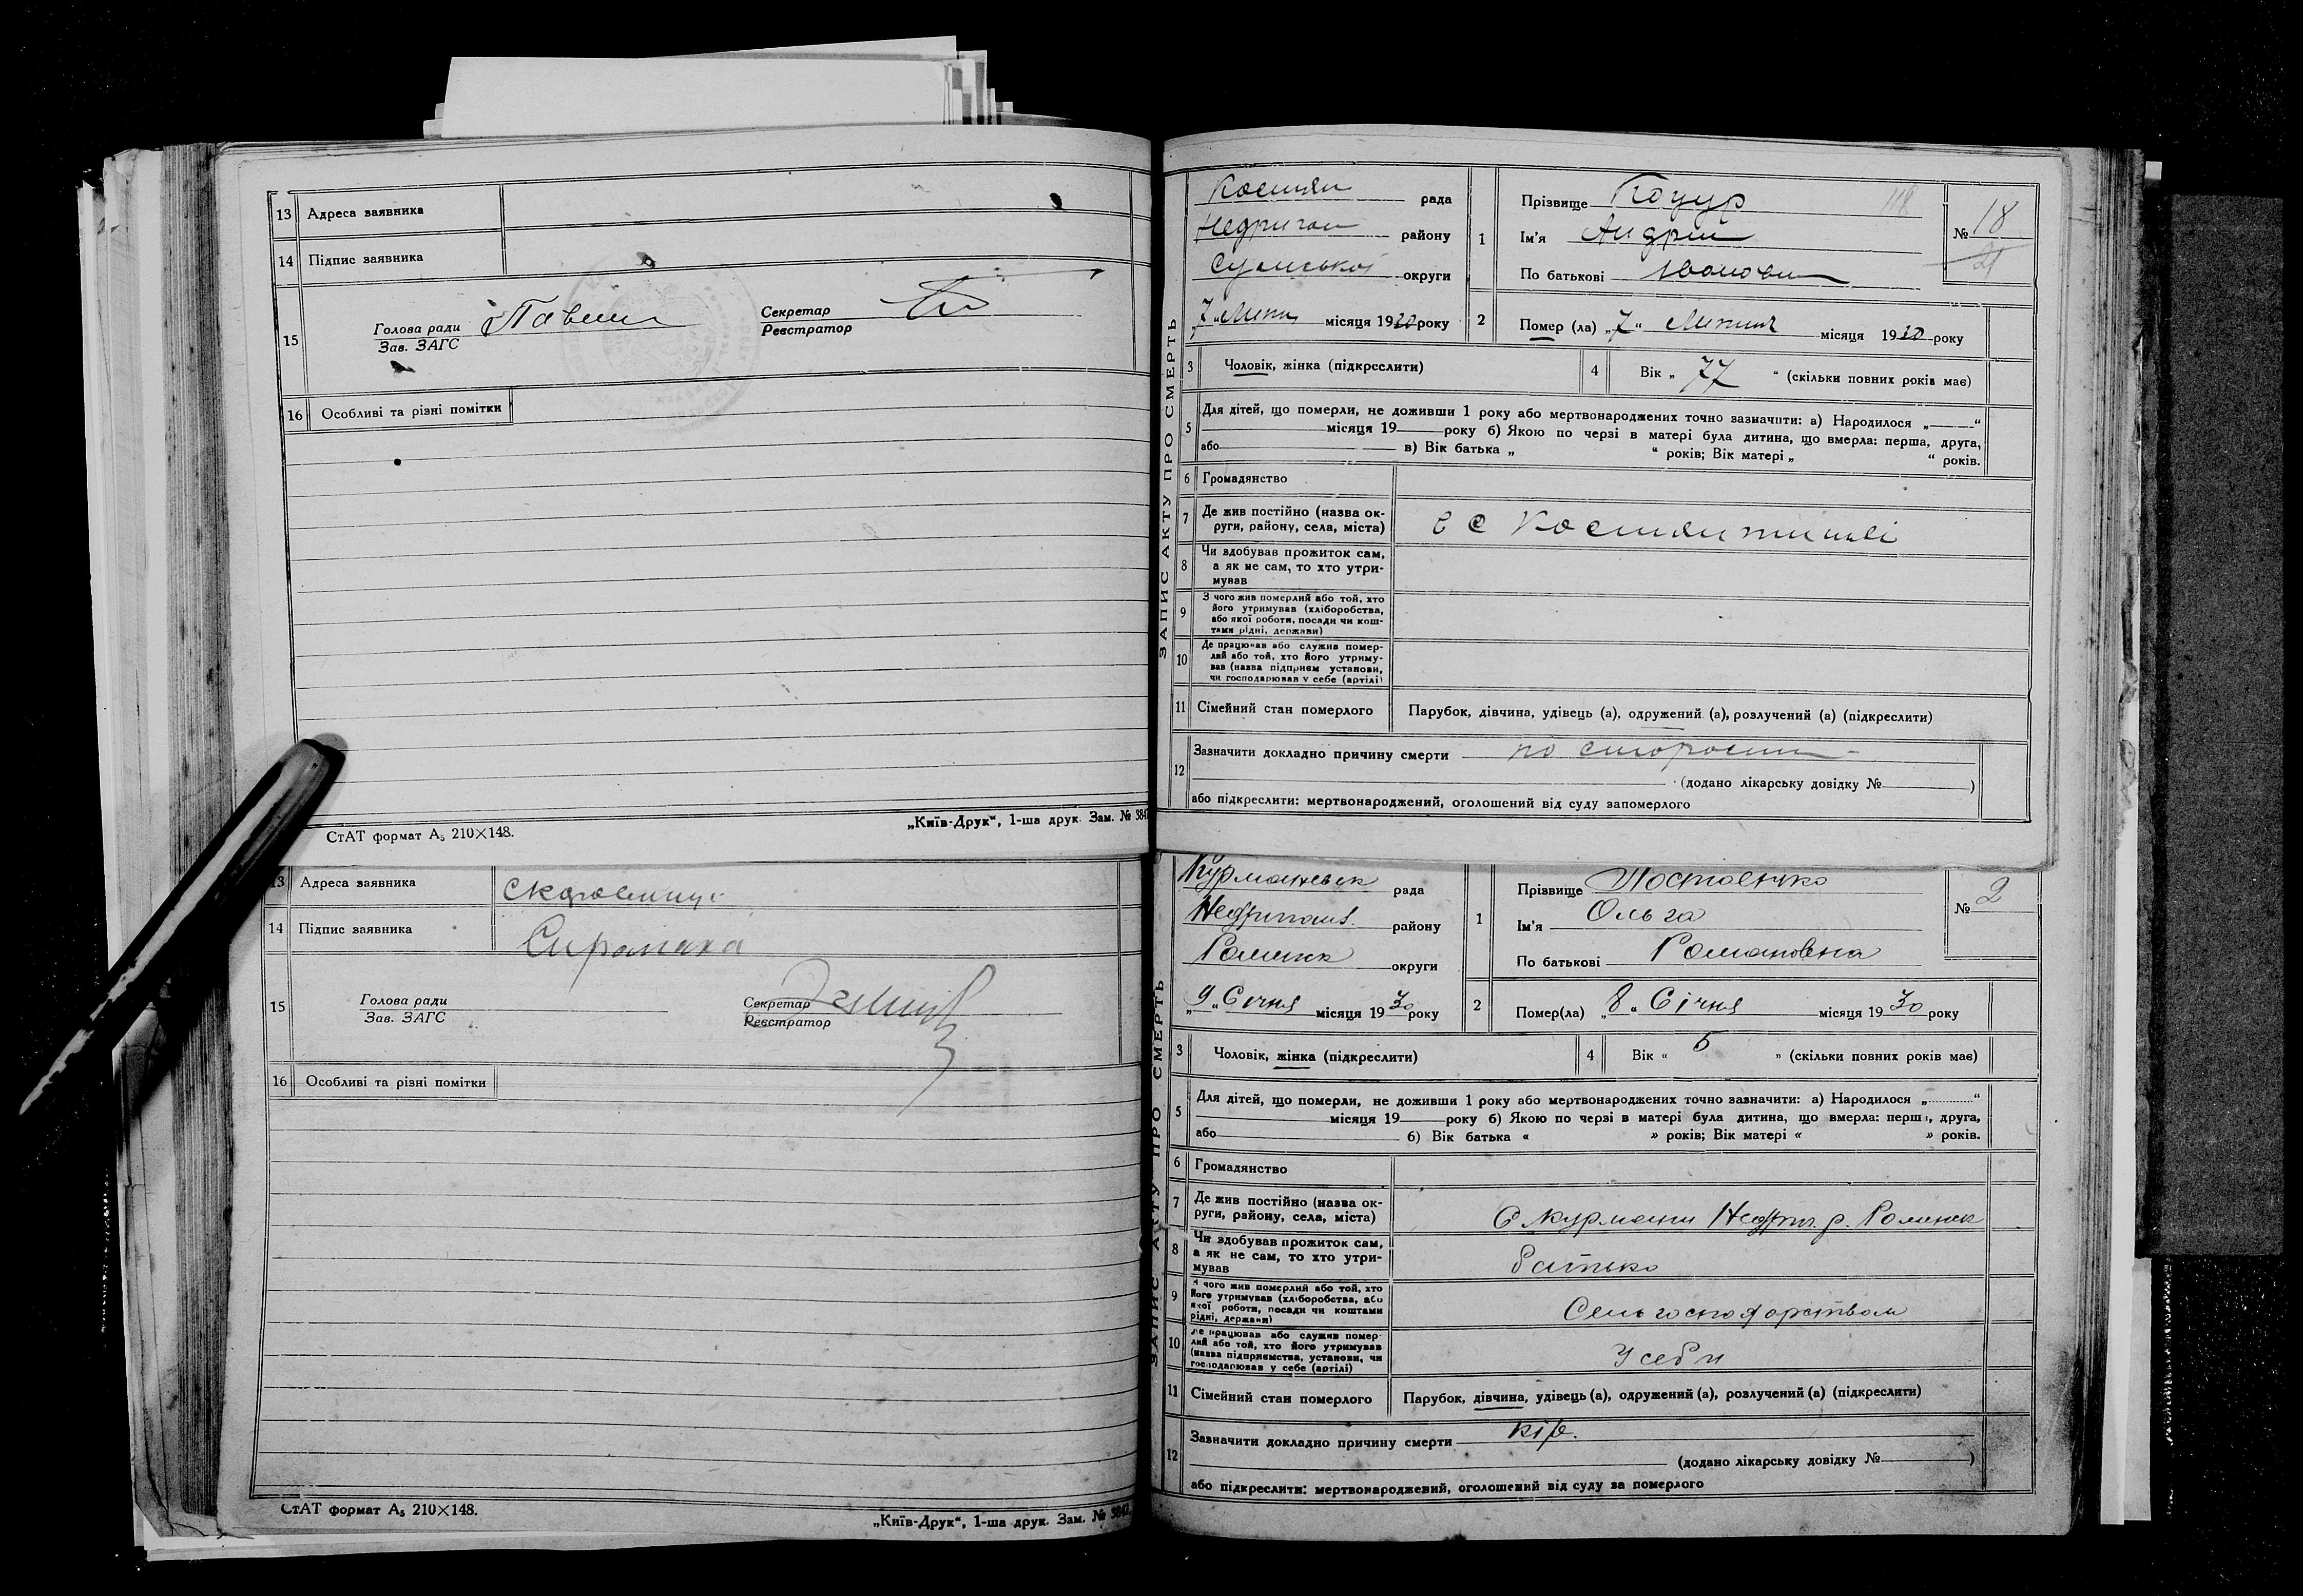 13 Адреса заявника
14 Підпис заявника
15 Голова ради
Зав. ЗАГС
Секретар
Реєстратор
16 Особливі та різні помітки
СтАТ формат А₅ 210×148.
„Київ-Друк“, 1-ша друк. Зам. № 3847
13 Адреса заявника
14 Підпис заявника Сиромаха
15 Голова ради
Зав. ЗАГС
Секретар
Реєстратор
16 Особливі та різні помітки
СтАТ формат А₅ 210×148.
„Київ-Друк“, 1-ша друк. Зам. № 3847.
ЗАПИС АКТУ ПРО СМЕРТЬ
рада
району
Сумської округи
„7“ Липн місяця 1930 року
1 Прізвище Коцур 118
Ім'я Андрій
По батькові Іванович
№ 18
21
2 Помер (ла) „7“ Липня місяця 1930 року
3 Чоловік, жінка (підкреслити)
4 Вік „ 77 “ (скільки повних років має)
5 Для дітей, що померли, не доживши 1 року або мертвонароджених точно зазначити: а) Народилося „ “
місяця 19 року б) Якою по черзі в матері була дитина, що вмерла: перша, друга,
або в) Вік батька „ “ років; Вік матері „ “ років.
6 Громадянство
7 Де жив постійно (назва ок-
руги, району, села, міста)
8 Чи здобував прожиток сам,
а як не сам, то хто утри-
мував
9 З чого жив померлий або той, хто
його утримував (хліборобства,
або якої роботи, посади чи кош-
тами рідні, держави)
10 Де працював або служив помер-
лий або той, хто його утриму-
вав (назва підприєм установи,
чи господарював у себе (артілі)
11 Сімейний стан померлого Парубок, дівчина, удівець (а), одружений (а), розлучений (а) (підкреслити)
12 Зазначити докладно причину смерти по старости
(додано лікарську довідку № )
або підкреслити: мертвонароджений, оголошений від суду запомерлого
ЗАПИС АКТУ ПРО СМЕРТЬ
Курманевск рада
Недригайл. району
Роменск округи
„9“ Січня місяця 1930 року
1 Прізвище
Ім'я Ольга
По батькові Романовна
№ 2
2 Помер(ла) „8“ Січня місяця 1930 року
3 Чоловік, жінка (підкреслити)
4 Вік « 5 » (скільки повних років має)
5 Для дітей, що померли, не доживши 1 року або мертвонароджених точно зазначити: а) Народилося „ “
місяця 19 року б) Якою по черзі в матері була дитина, що вмерла: перша, друга,
або б) Вік батька « » років; Вік матері « » років.
6 Громадянство
7 Де жив постійно (назва ок-
руги, району, села, міста) С Курмани р. Роменск
8 Чи здобував прожиток сам,
а як не сам, то хто утри-
мував Батько
9 З чого жив померлий або той, хто
його утримував (хліборобства, або
якої роботи, посади чи коштами
рідні, держави) Сель господарством
10 Де працював або служив помер-
лий або той, хто його утримував
(назва підприємства, установи, чи
господарював у себе (артілі) У себи
11 Сімейний стан померлого Парубок, дівчина, удівець (а), одружений (а), розлучений (а) (підкреслити)
12 Зазначити докладно причину смерти кір.
(додано лікарську довідку № )
або підкреслити: мертвонароджений, оголошений від суду за померлого